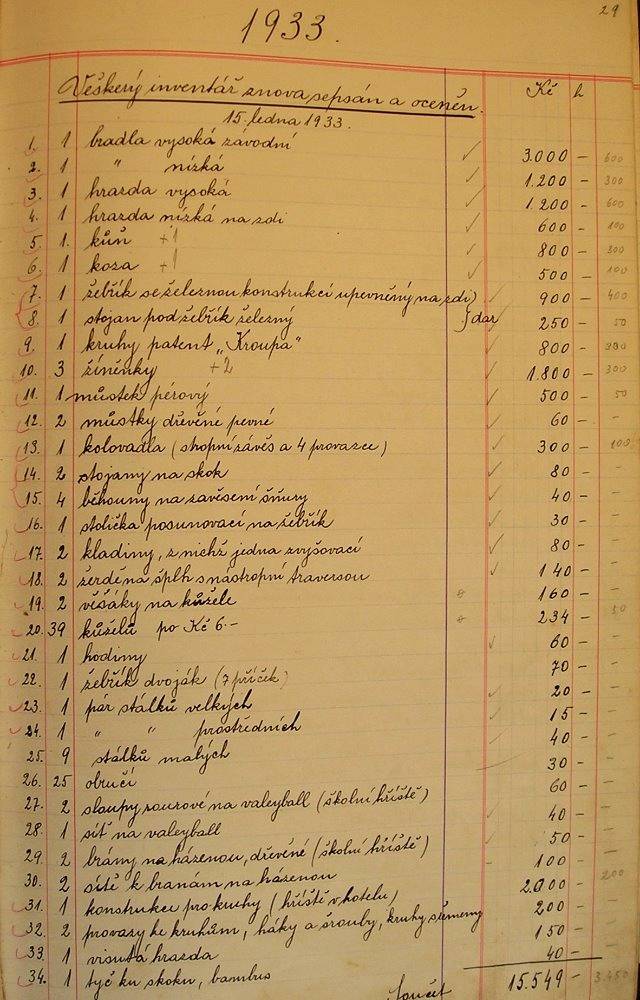 29
1933.
Veškerý inventář znova sepsán a oceněn. Kč h
15. ledna 1933.
1. 1 bradla vysoká závodní ✓ 3.000 – 600
2. 1 " nízká ✓ 1.200 – 300
3. 1 hrazda vysoká ✓ 1.200 – 600
4. 1 hrazda nízká na zdi ✓ 600 – 100
5. 1. kůň +1 ✓ 800 – 300
6. 1 koza +1 ✓ 500 – 100
7. 1 žebřík se železnou konstrukcí upevněný na zdi) ✓ 900 – 400
8. 1 stojan pod žebřík železný } dar 250 – 50
9. 1 kruhy patent „Kroupa" ✓ 800 –
10. 3 žíněnky +2 ✓ 1.800 – 300
11. 1 můstek pérový ✓ 500 – 50
12. 2 můstky dřevěné pevné ✓ 60 – –
13. 1 kolovadla (stropní závěs a 4 provazce) ✓ 300 – 100
14. 2 stojany na skok ✓ 80 – –
15. 4 běhouny na zavěšení šňury ✓ 40 – –
16. 1 stolička posunovací na žebřík ✓ 30 – –
17. 2 kladiny, z nichž jedna zvyšovací ✓ 80 – –
18. 2 žerdě na šplh s nástropní traversou ✓ 140 – –
19. 2 věšáky na kůžele 160 – –
20. 39 kůželů po Kč 6.– 234 – 50
21. 1 hodiny ✓ 60 –
22. 1 žebřík dvoják (7 příček) 70 –
23. 1 pár stálků velkých ✓ 20 – –
24. 1 " " prostředních ✓ 15 – –
25. 9 stálků malých ✓ 40 – –
26. 25 obručí 30 –
27. 2 sloupy rourové na valeyball (školní hřiště) 60 –
28. 1 síť na valeyball ✓ 40 – –
29. 2 brány na házenou, dřevěné (školní hřiště) ✓ 50 – –
30. 2 sítě k branám na házenou – 100 –
31. 1 konstrukce pro kruhy (hřiště v hotelu) 2.000 – 200
32. 2 provazy ke kruhům, háky a šrouby, kruhy s řemeny 200 –
33. 1 visutá hrazda 150 –
34. 1 tyč ku skoku, bambus 40 –
Součet 15.549 – 3.450